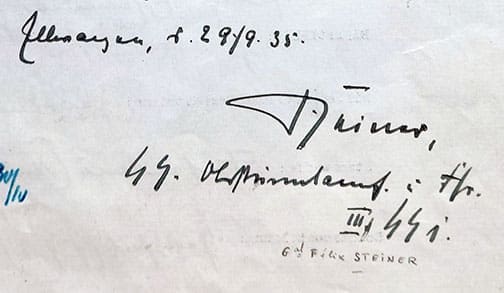 Ellwangen, d. 29/9. 35.
Steiner,
SS. Obersturmbannf. u. Fhr.
III/ SS 1.
Gal Félix STEINER